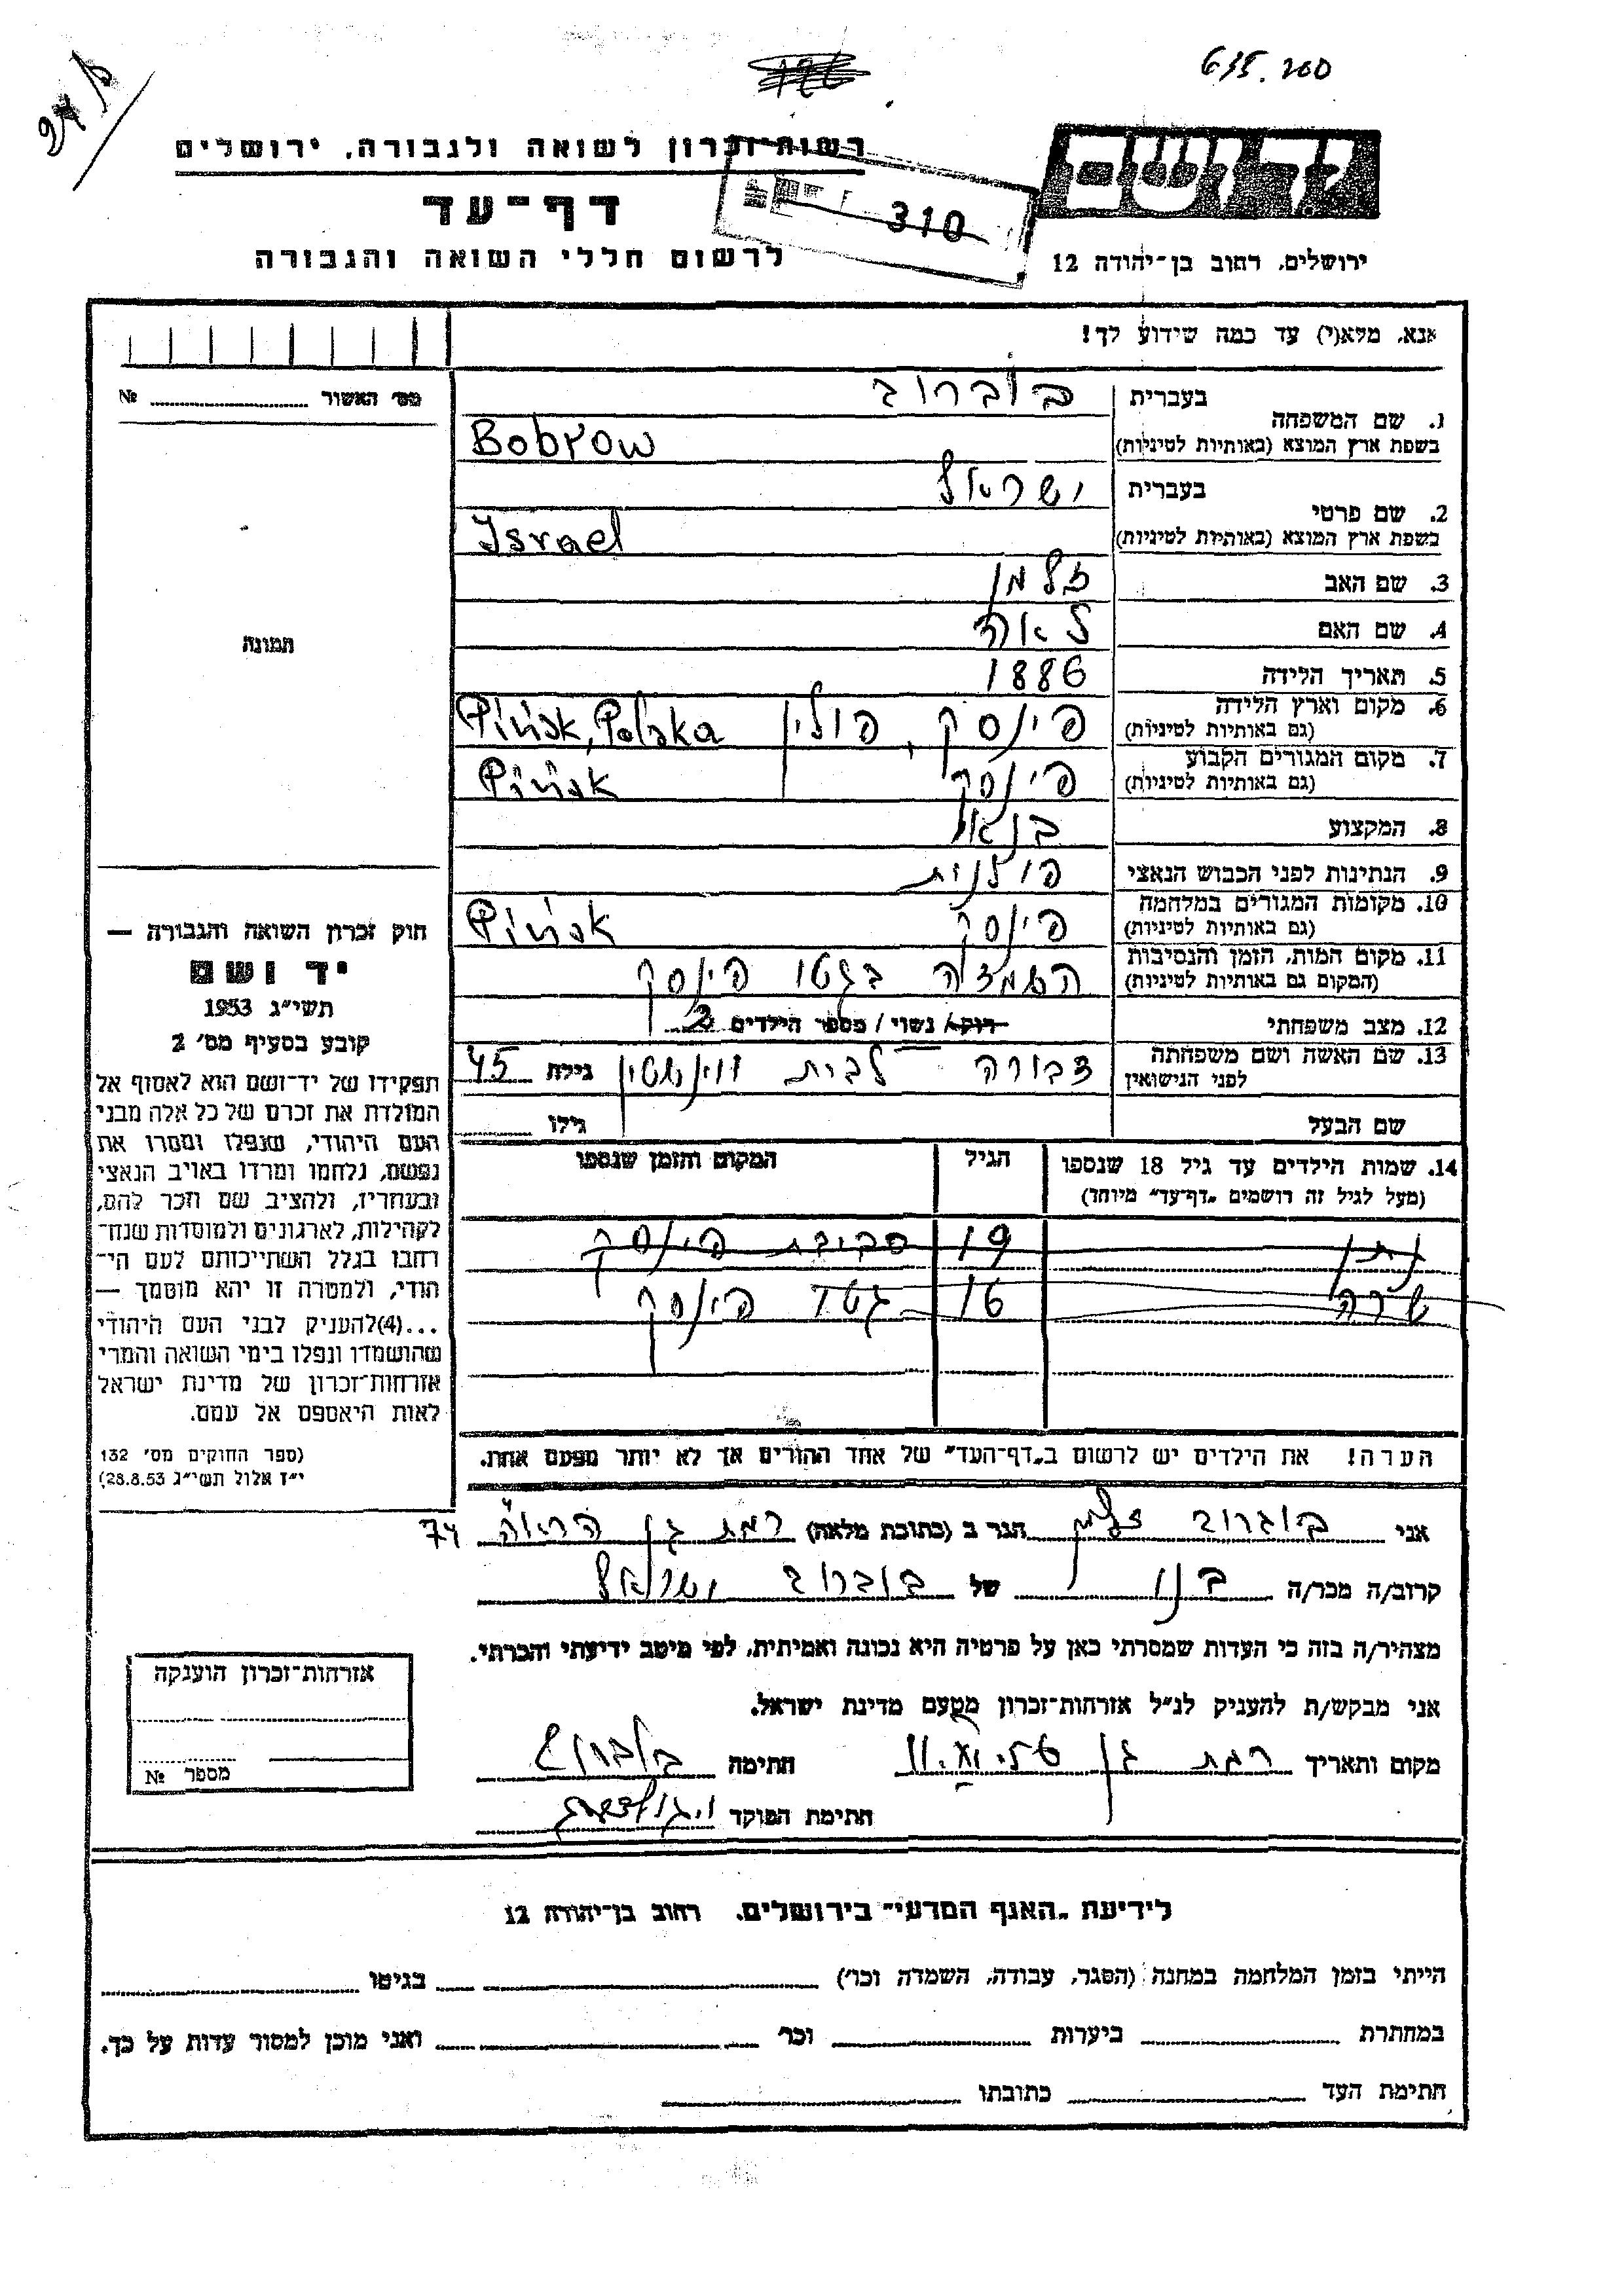 24/A
635.200
רשות־זכרון לשואה ולגבורה, ירושלים
יד ושם
דף־עד
310
לרשום חללי השואה והגבורה
ירושלים, רחוב בן־יהודה 12
אנא, מלא(י) עד כמה שידוע לך!
מס׳ האשור № 
1. שם המשפחה בעברית בוברוב
בשפת ארץ המוצא (באותיות לטיניות) Bobrow
2. שם פרטי בעברית ישראל
בשפת ארץ המוצא (באותיות לטיניות) Israel
3. שם האב זלמן
4. שם האם לאה
5. תאריך הלידה 1886
6. מקום וארץ הלידה (גם באותיות לטיניות) פינסק, פולין Pińsk, Polska
7. מקום המגורים הקבוע (גם באותיות לטיניות) פינסק Pińsk
8. המקצוע בנאי
9. הנתינות לפני הכבוש הנאצי פולנית
10. מקומות המגורים במלחמה (גם באותיות לטיניות) פינסק Pińsk
11. מקום המות, הזמן והנסיבות (המקום גם באותיות לטיניות) בגטו פינסק
12. מצב משפחתי רוק/ נשוי / מספר הילדים 2
13. שם האשה ושם משפחתה לפני הנישואין דבורה לבית ווינשטין גילה 45
שם הבעל גילו
תמונה
14. שמות הילדים עד גיל 18 שנספו (מעל לגיל זה רושמים „דף־עד״ מיוחד) הגיל המקום והזמן שנספו
נתן 19 סביבת פינסק
שרה 16 גטו פינסק
הערה! את הילדים יש לרשום ב„דף־העד״ של אחד ההורים אך לא יותר מפעם אחת.
חוק זכרון השואה והגבורה —
יד ושם
תשי״ג 1953
קובע בסעיף מס׳ 2
תפקידו של יד־ושם הוא לאסוף אל
המולדת את זכרם של כל אלה מבני
העם היהודי, שנפלו ומסרו את
נפשם, נלחמו ומרדו באויב הנאצי
ובעוזריו, ולהציב שם וזכר להם,
לקהילות, לארגונים ולמוסדות שנח־
רחבו בגלל השתייכותם לעם הי־
הודי, ולמטרה זו יהא מוסמך —
...(4)להעניק לבני העם היהודי
שהושמדו ונפלו בימי השואה והמרי
אזרחות־זכרון של מדינת ישראל
לאות היאספם אל עמם.
(ספר החוקים מס׳ 132
י״ז אלול תשי״ג 28.8.53)
אני בוברוב זלמן הגר ב (כתובת מלאה) רמת גן הרואה 74
קרוב/ה מכר/ה בנו של בוברוב ישראל
מצהיר/ה בזה כי העדות שמסרתי כאן על פרטיה היא נכונה ואמיתית, לפי מיטב ידיעתי והכרתי.
אני מבקש/ת להעניק לנ״ל אזרחות־זכרון מטעם מדינת ישראל.
מקום ותאריך רמת גן חתימה בוברוב
חתימת הפוקד
אזרחות־זכרון הוענקה
מספר №
לידיעת „האגף המדעי״ בירושלים, רחוב בן־יהודה 12
הייתי בזמן המלחמה במחנה (הסגר, עבודה, השמדה וכו׳) בגיטו
במחתרת ביערות וכו׳ ואני מוכן למסור עדות על כך.
חתימת העד כתובתו